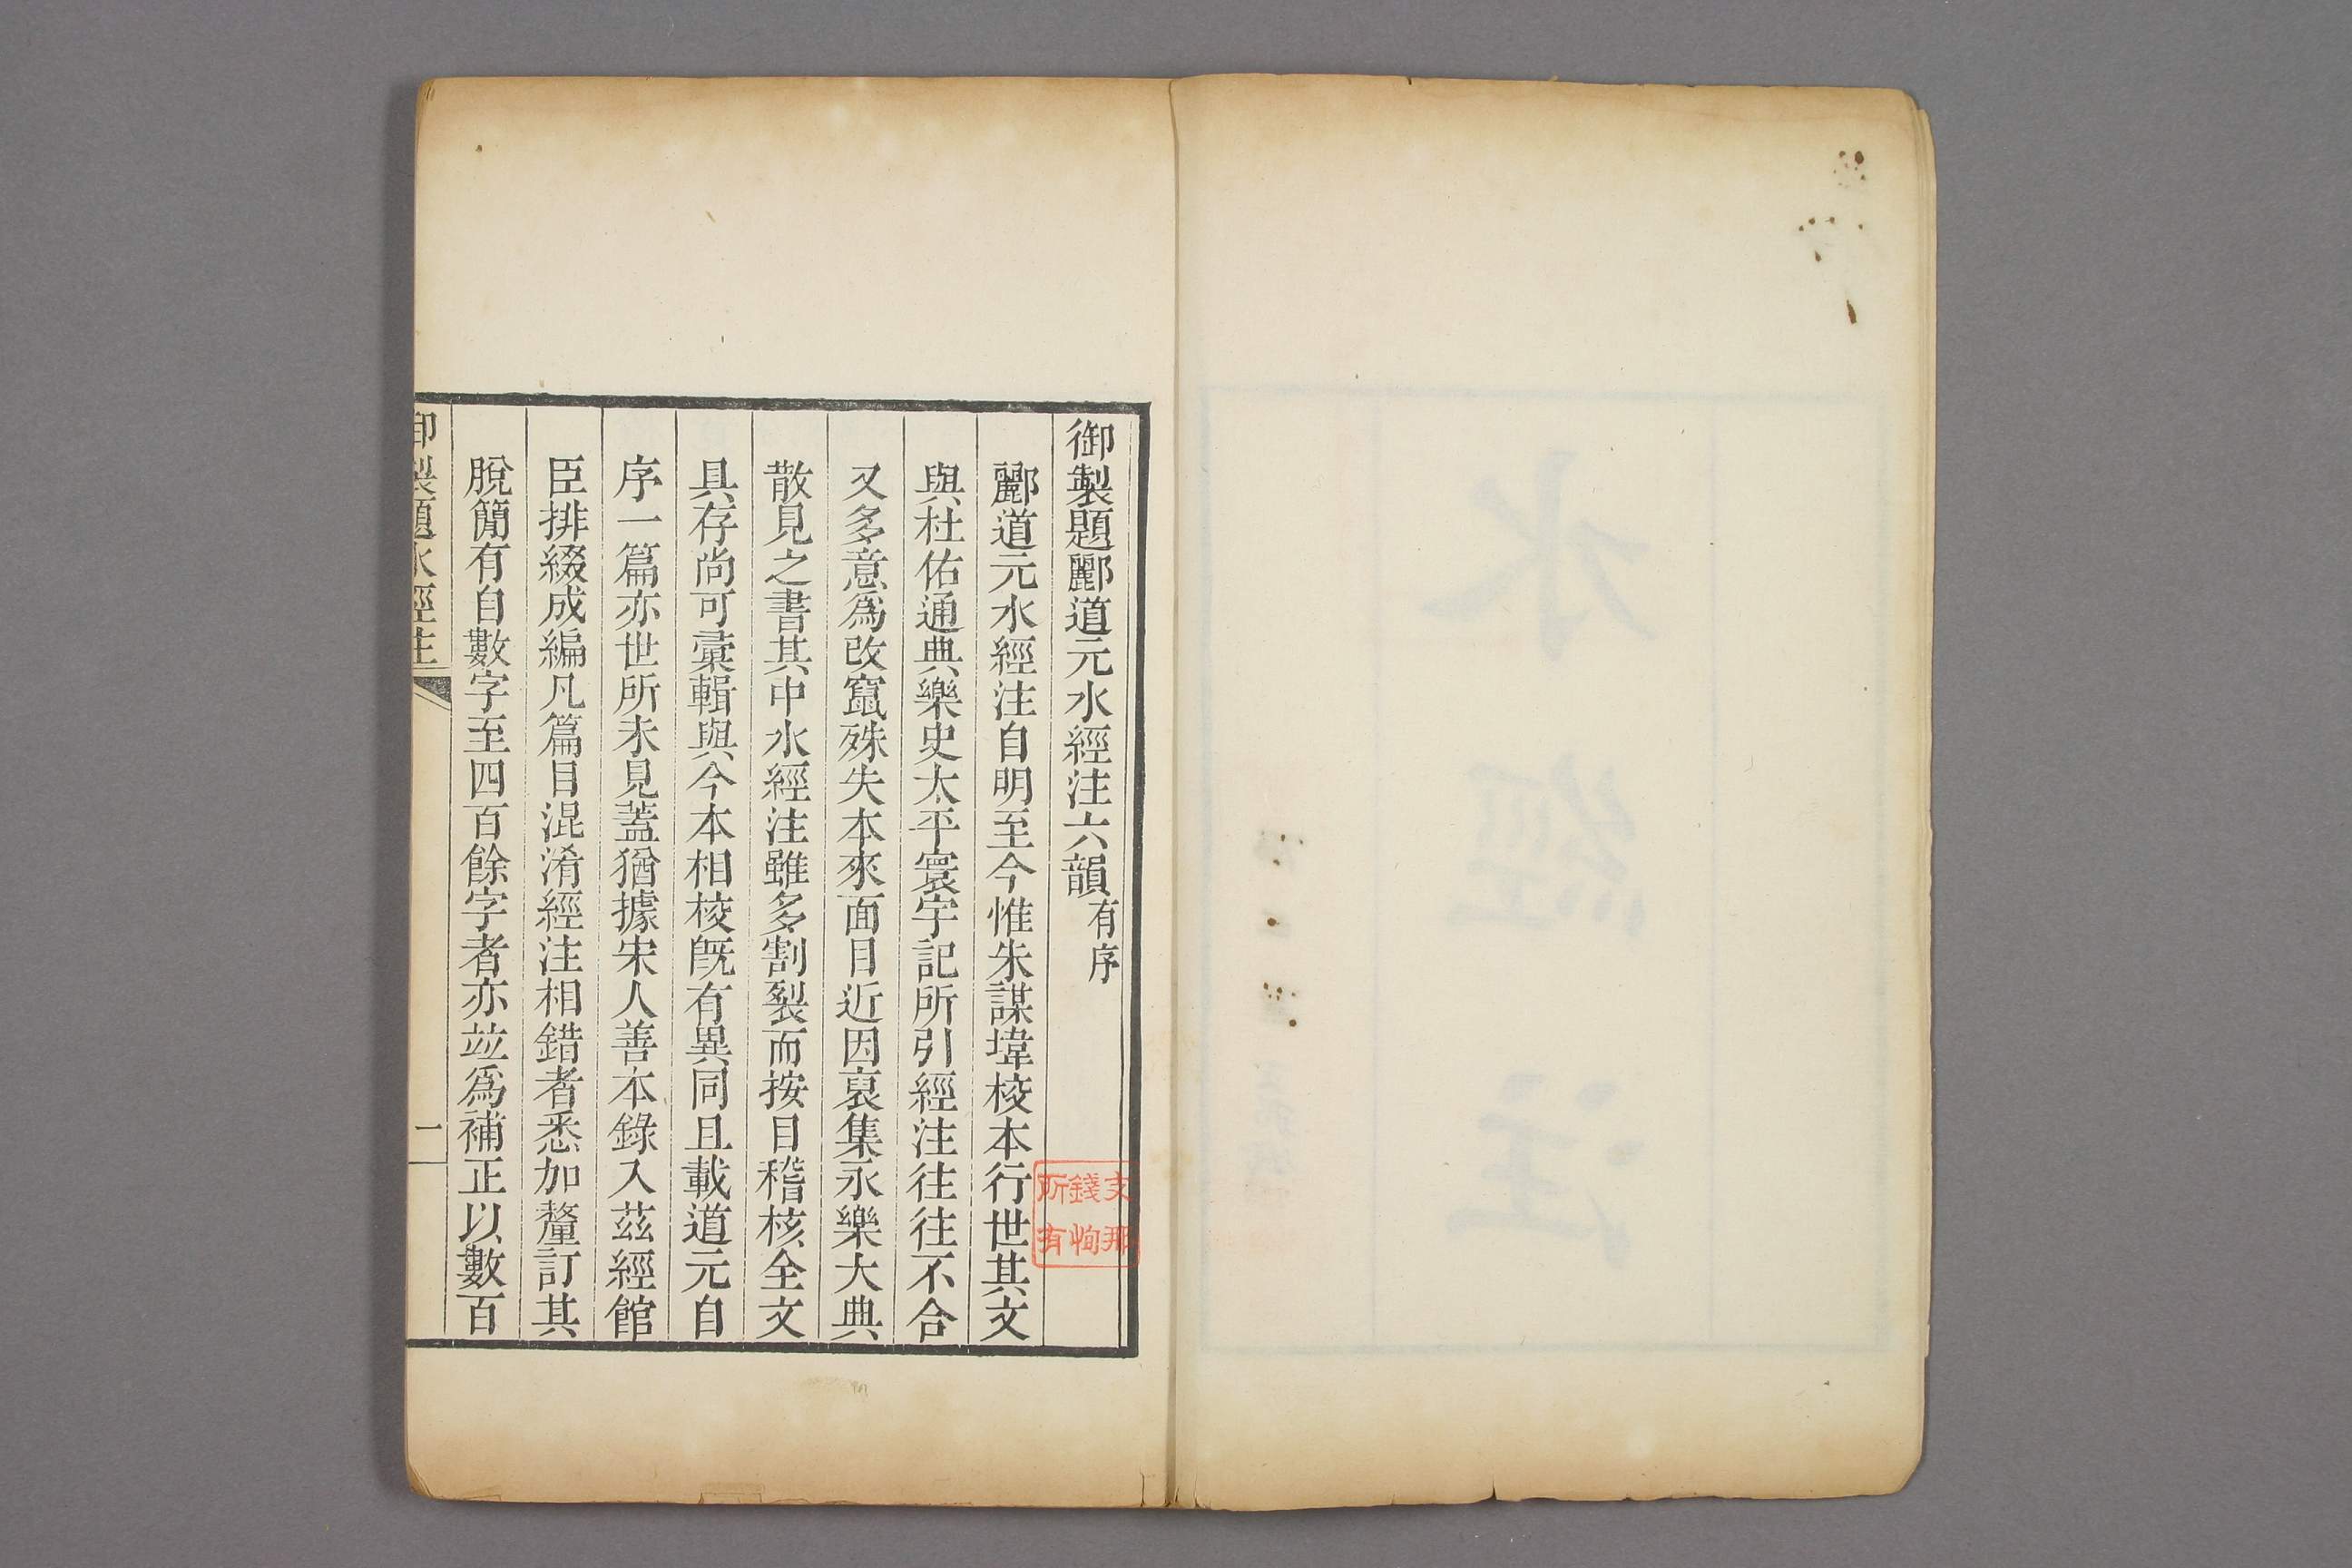 御製題酈道元水經注六韻有序
酈道元水經注自明至今惟朱謀㙔校本行世其文
與杜佑通典樂史太平寰宇記所引經注往往不合
又多意爲改竄殊失本來面目近因裒集永樂大典
散見之書其中水經注雖多割裂而按目稽核全文
具存尚可彙輯與今本相校旣有異同且載道元自
序一篇亦世所未見蓋猶據宋人善本錄入茲經館
臣排綴成編凡篇目混淆經注相錯者悉加釐訂其
脫簡有自數字至四百餘字者亦竝爲補正以數百
御製題水經注
一
文邢
錢恂
所有
水經注